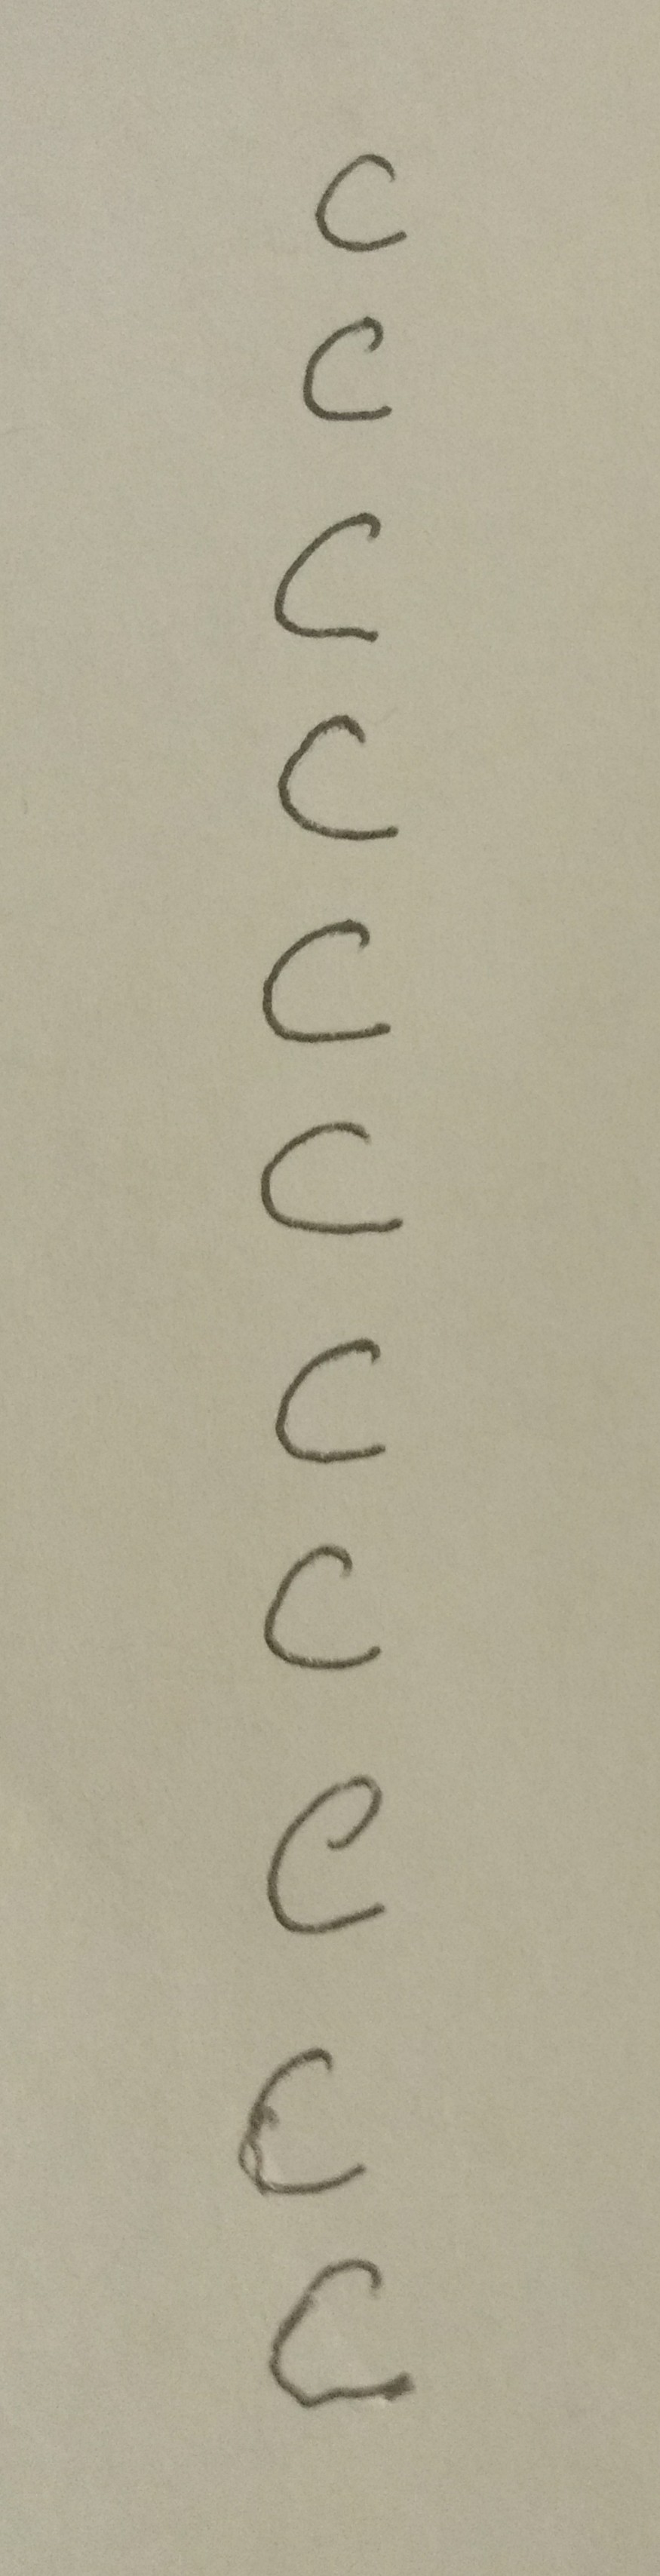 C
C
C
C
C
C
C
C
C
C
C